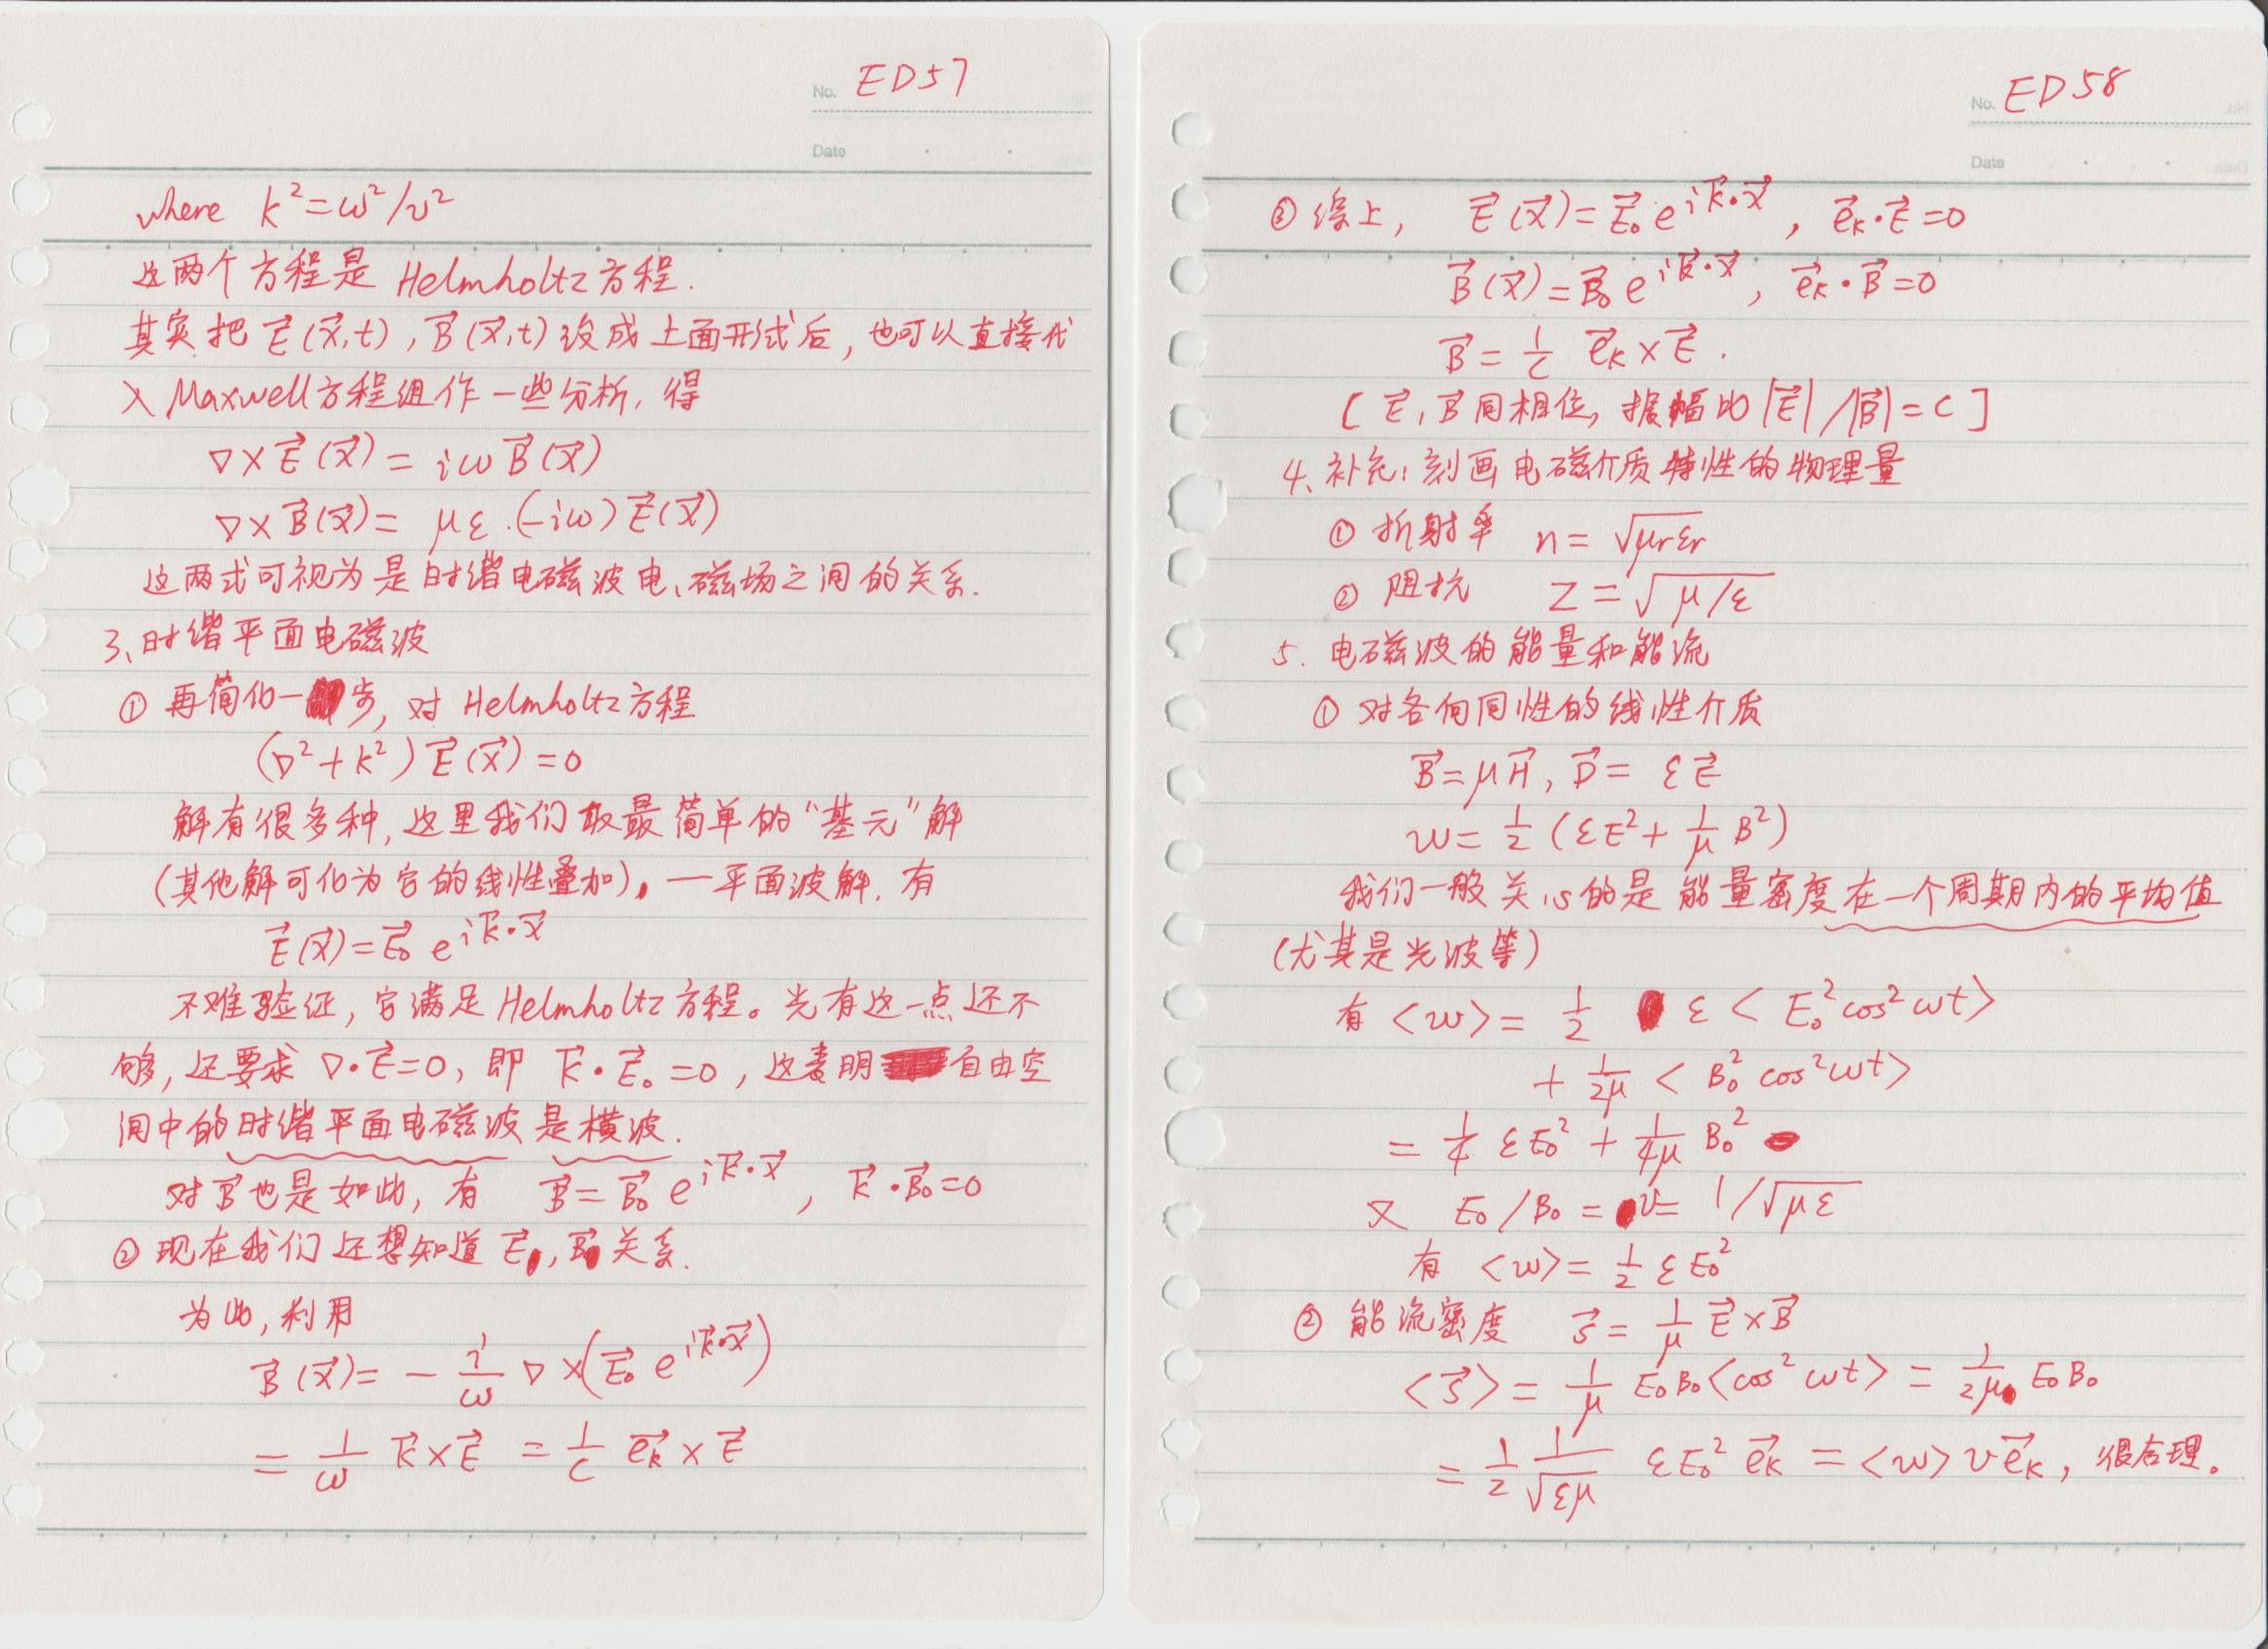 No. ED57
Date
where k²=ω²/v²
这两个方程是 Helmholtz方程.
其实把 E⃗(x⃗,t), B⃗(x⃗,t)设成上面形式后,也可以直接代
入Maxwell方程组作一些分析,得
∇×E⃗(x⃗) = iωB⃗(x⃗)
∇×B⃗(x⃗) = με·(-iω)E⃗(x⃗)
这两式可视为是时谐电磁波电、磁场之间的关系.
3、时谐平面电磁波
① 再简化一步,对Helmholtz方程
(∇²+k²)E⃗(x⃗)=0
解有很多种,这里我们取最简单的“基元”解
(其他解可化为它的线性叠加),—平面波解.有
E⃗(x⃗)=E⃗₀ e^{ik⃗·x⃗}
不难验证,它满足Helmholtz方程。光有这一点还不
够,还要求 ∇·E⃗=0,即 k⃗·E⃗₀=0,这表明自由空
间中的时谐平面电磁波是横波.
对B⃗也是如此,有 B⃗=B⃗₀ e^{ik⃗·x⃗}, k⃗·B⃗₀=0
② 现在我们还想知道E⃗,B⃗关系.
为此,利用
B⃗(x⃗)= - i/ω ∇×(E⃗₀ e^{ik⃗·x⃗})
= 1/ω k⃗×E⃗ = 1/c e⃗ₖ×E⃗
No. ED58
Date
③ 综上, E⃗(x⃗)=E⃗₀ e^{ik⃗·x⃗}, e⃗ₖ·E⃗=0
B⃗(x⃗)=B⃗₀ e^{ik⃗·x⃗}, e⃗ₖ·B⃗=0
B⃗= 1/c e⃗ₖ×E⃗.
[E⃗,B⃗同相位,振幅比|E⃗|/|B⃗|=c]
4、补充:刻画电磁介质特性的物理量
① 折射率 n=√(μrεr)
② 阻抗 Z=√(μ/ε)
5. 电磁波的能量和能流
① 对各向同性的线性介质
B⃗=μH⃗, D⃗=εE⃗
w= 1/2 (εE²+ 1/μ B²)
我们一般关心的是能量密度在一个周期内的平均值
(尤其是光波等)
有 <w>= 1/2 ε<E₀²cos²ωt>
+ 1/2μ <B₀²cos²ωt>
= 1/4 εE₀² + 1/4μ B₀²
又 E₀/B₀ = v = 1/√(με)
有 <w>= 1/2 εE₀²
② 能流密度 S⃗= 1/μ E⃗×B⃗
<S⃗>= 1/μ E₀B₀<cos²ωt> = 1/2μ E₀B₀
= 1/2 1/√(εμ) εE₀² e⃗ₖ = <w>v e⃗ₖ, 很合理。